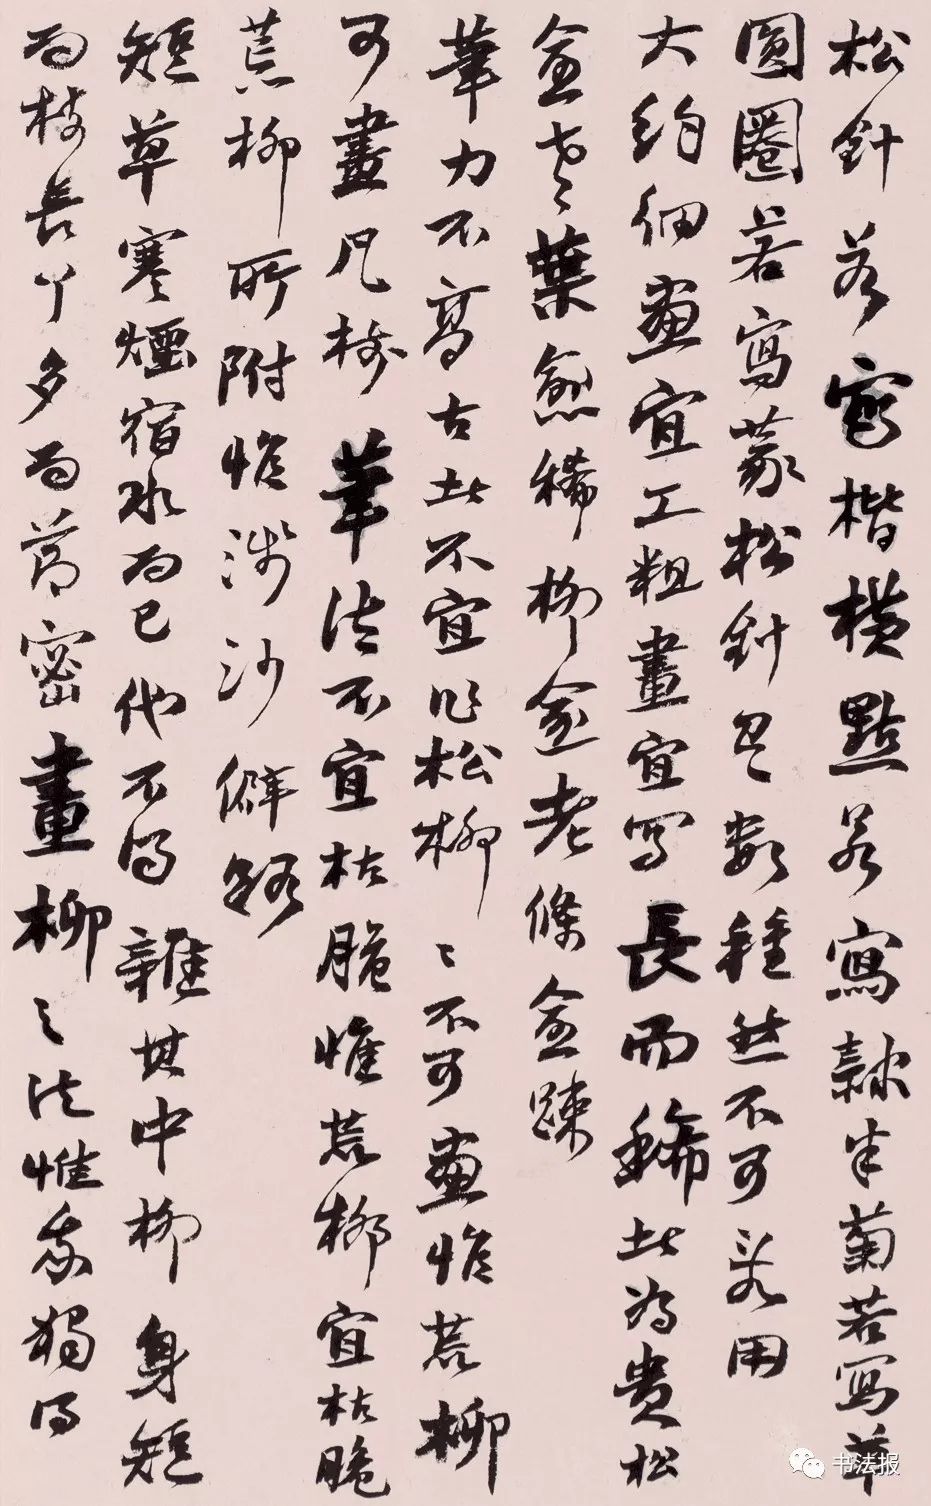 松針若寫楷橫點若寫隸半菊若寫草
圓圈若寫篆松針只數種然不可亂用
大約細畫宜工粗畫宜寫長而稀者為貴松
愈老葉愈稀柳愈老條愈疎
筆力不高古者不宜作松柳〻不可畫惟荒柳
可畫凡樹筆法不宜枯脆惟荒柳宜枯脆
荒柳所附惟淺沙僻路
短草寒煙宿水而已他不得雜其中柳身短
而枝長丫多而節密畫柳之法惟余獨得
书法报